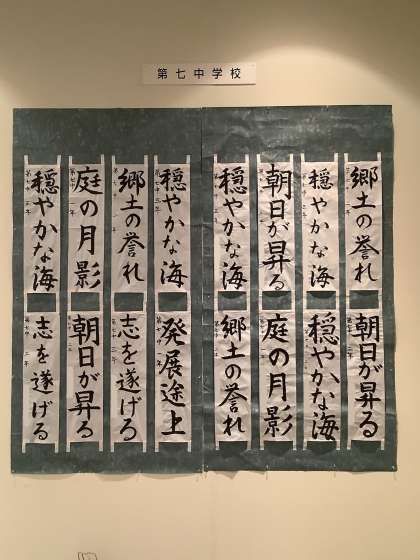 第七中学校
郷土の誉れ
穏やかな海
朝日が昇る
穏やかな海
穏やかな海
郷土の誉れ
庭の月影
穏やかな海
朝日が昇る
穏やかな海
庭の月影
郷土の誉れ
発展途上
志を遂げる
朝日が昇る
志を遂げる